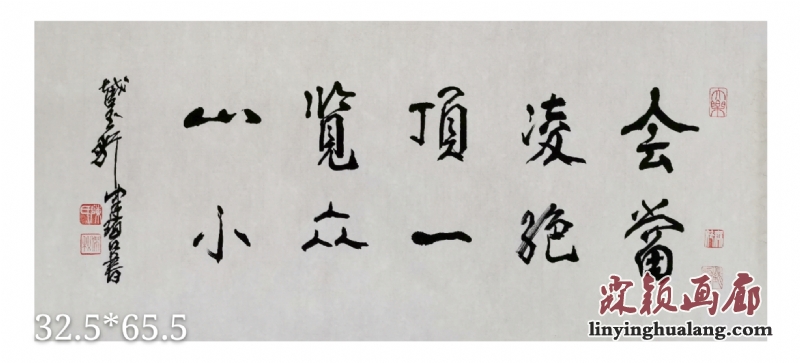 会當
凌绝
頂一
覧众
山小
32.5*65.5
霖颖画廊
linyinghualang.com